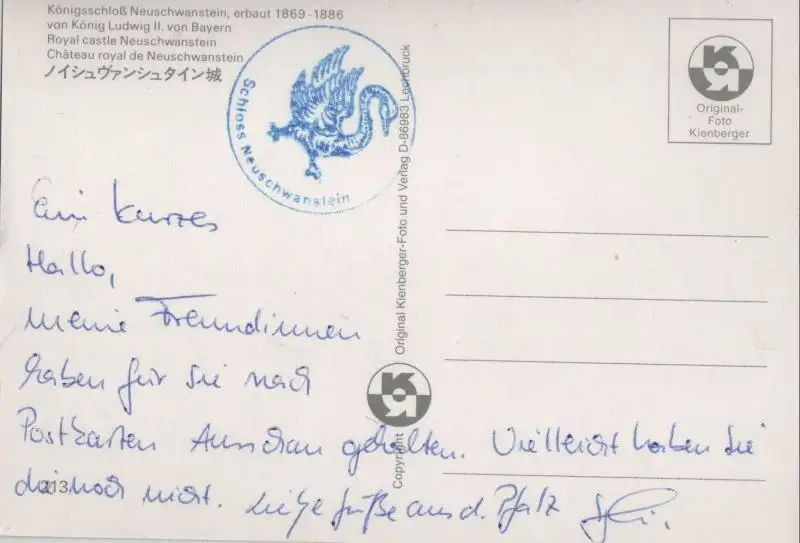 Königsschloß Neuschwanstein, erbaut 1869-1886
von König Ludwig II. von Bayern
Royal castle Neuschwanstein
Château royal de Neuschwanstein
ノイシュヴァンシュタイン城
Schloss Neuschwanstein
Original-
Foto
Kienberger
Copyright
Original Kienberger-Foto und Verlag D-86983 Lechbruck
Ein kurzes
Hallo,
meine Freundinnen
haben für Sie nach
Postkarten Ausschau gehalten. Vielleicht haben Sie
die noch nicht. Liebe Grüße aus d. Pfalz
213